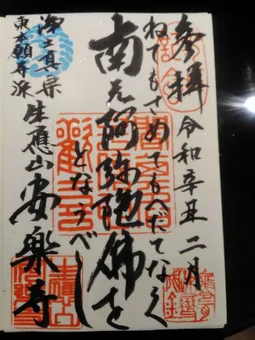 参拝
令和辛丑二月
ねてもさめてもへだてなく
南无阿弥陀佛を
となうべし
浄土真宗
東本願寺派
生應山安樂寺